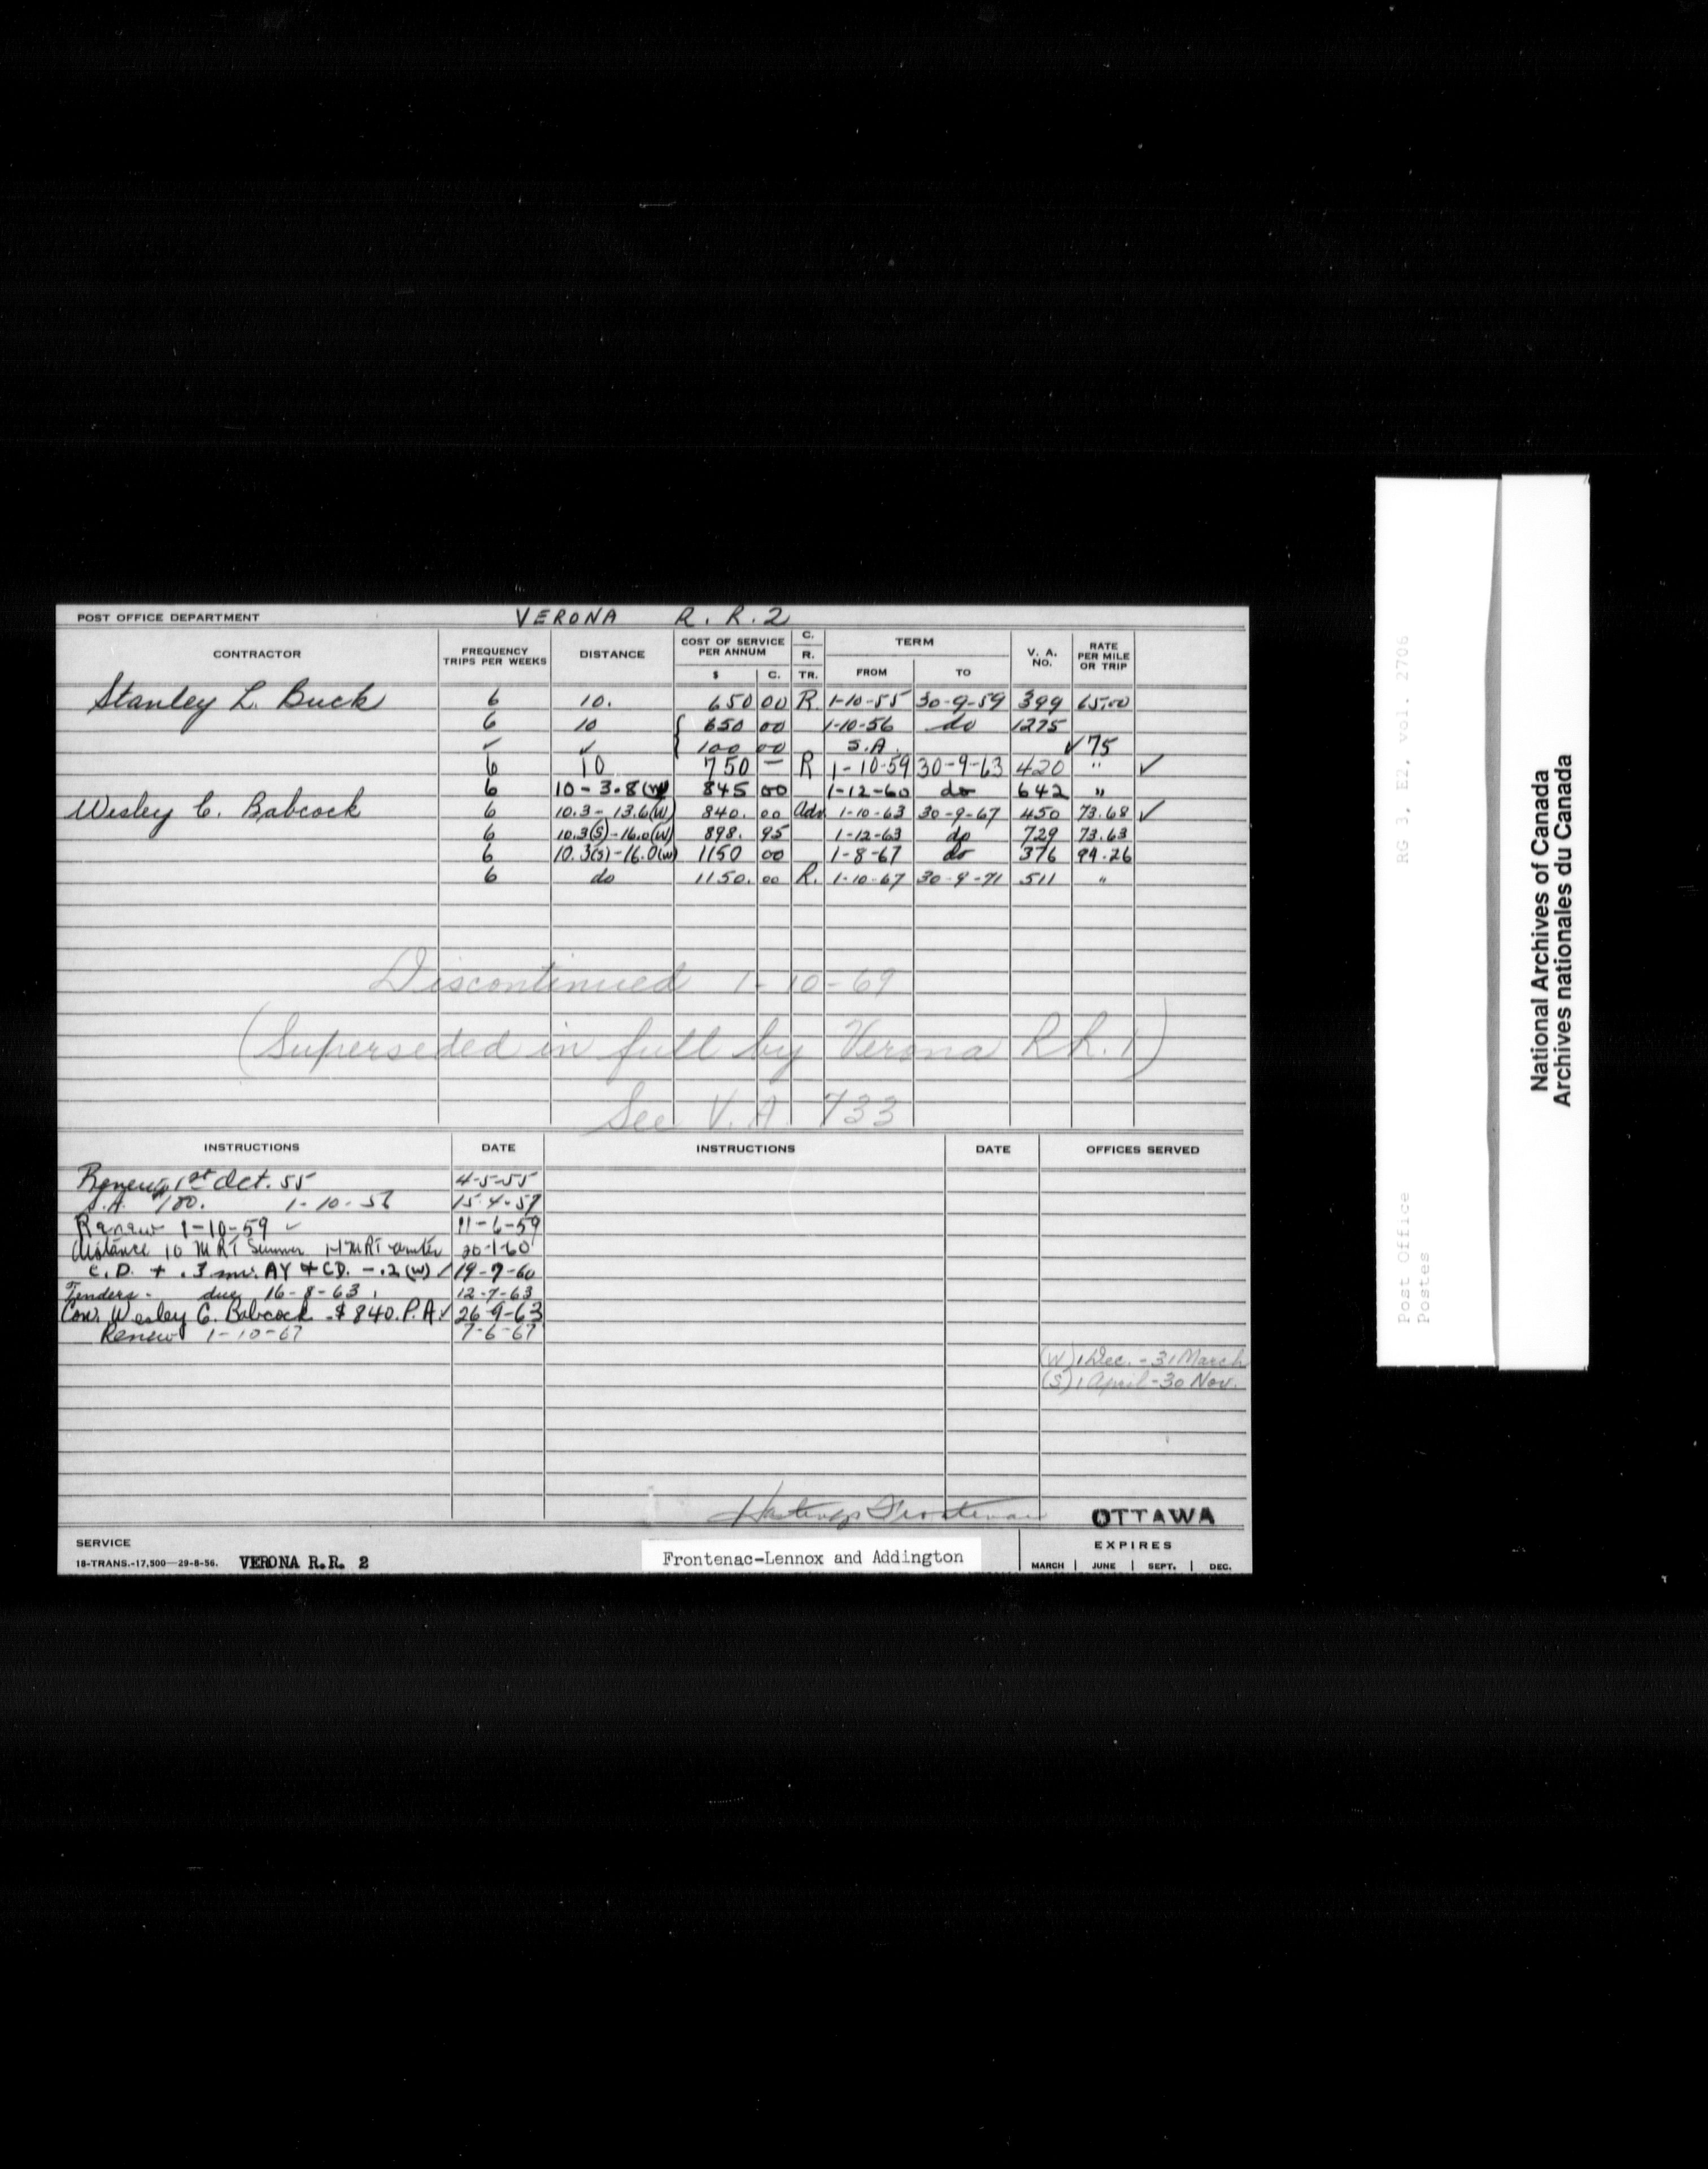 POST OFFICE DEPARTMENT VERONA R. R. 2
CONTRACTOR FREQUENCY TRIPS PER WEEKS DISTANCE COST OF SERVICE PER ANNUM $ C. C. R. TR. TERM FROM TO V. A. NO. RATE PER MILE OR TRIP
Stanley L. Buck 6 10. 650 00 R. 1-10-55 30-9-59 399 65.00
6 10 { 650 00 1-10-56 do 1275
✓ ✓ 100 00 S.A. ✓ 75
6 10 750 — R 1-10-59 30-9-63 420 " ✓
6 10 - 3.8 (W) 845 00 1-12-60 do 642 "
Wesley C. Babcock 6 10.3 - 13.6(W) 840. 00 Adv 1-10-63 30-9-67 450 73.68 ✓
6 10.3(S)-16.0(W) 898. 95 1-12-63 do 729 73.63
6 10.3(S)-16.0(W) 1150 00 1-8-67 do 376 94.26
6 do 1150. 00 R. 1-10-67 30-9-71 511 "
Discontinued 1-10-69
(Superseded in full by Verona R.R. 1)
See V.A. 733
INSTRUCTIONS DATE INSTRUCTIONS DATE OFFICES SERVED
Renew 1st Oct. 55 4-5-55
S.A. $100. 1-10-56 15-4-57
Renew 1-10-59 ✓ 11-6-59
Distance 10 M RT Summer M RT winter 20-1-60
C.D. + .3 mi. AY + CD. - .2 (W) ✓ 19-7-60
Tenders - due 16-8-63 12-7-63
Con. Wesley C. Babcock - $840. P.A. ✓ 26-9-63
Renew 1-10-67 7-6-67
(W) 1 Dec. - 31 March
(S) 1 April - 30 Nov.
Hastings Frontenac
OTTAWA
SERVICE
18-TRANS.-17,500—29-8-56. VERONA R.R. 2
Frontenac-Lennox and Addington
EXPIRES
MARCH | JUNE | SEPT. | DEC.
RG 3, E2, vol. 2706
Post Office
Postes
National Archives of Canada
Archives nationales du Canada